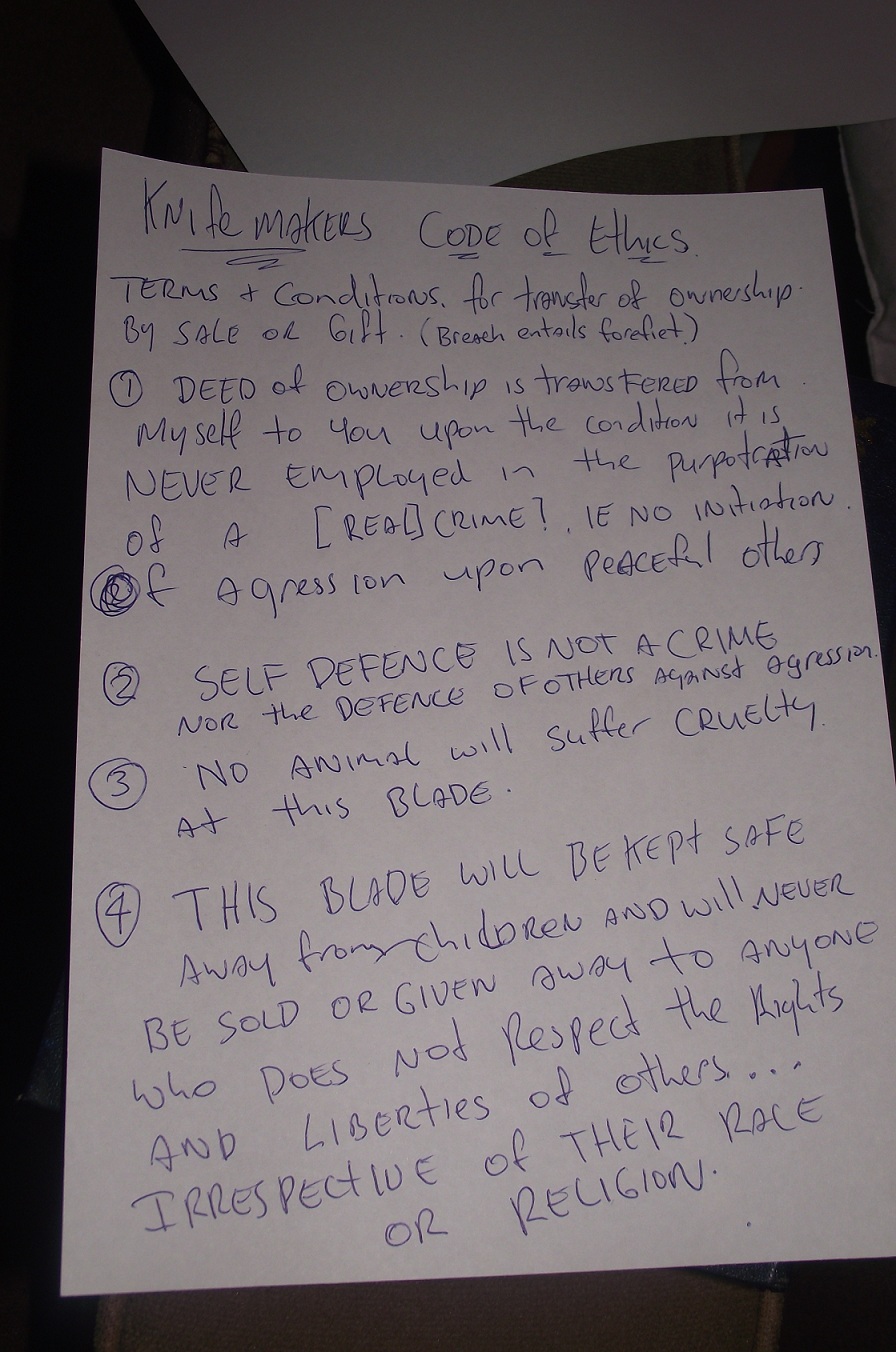 Knife makers Code of Ethics.
TERMS + Conditions. for transfer of ownership.
By SALE OR Gift. (Breach entails forefiet.)
① DEED of ownership is transfered from
Myself to You upon the condition it is
NEVER Employed in the purpotration
of A [REAL] CRIME?. IE NO initiation.
of Agression upon peaceful others
② SELF DEFENCE IS NOT A CRIME
NOR the DEFENCE OF OTHERS Against Agression.
③ NO ANIMAL will suffer CRUELTY.
At this BLADE.
④ THIS BLADE WILL BE KEPT SAFE
AWAY from children AND will NEVER
BE SOLD OR GIVEN AWAY to ANYONE
who DOES NOT Respect the Rights
AND LIBERTIES of others...
IRRESPECTIVE of THEIR RACE
OR RELIGION.